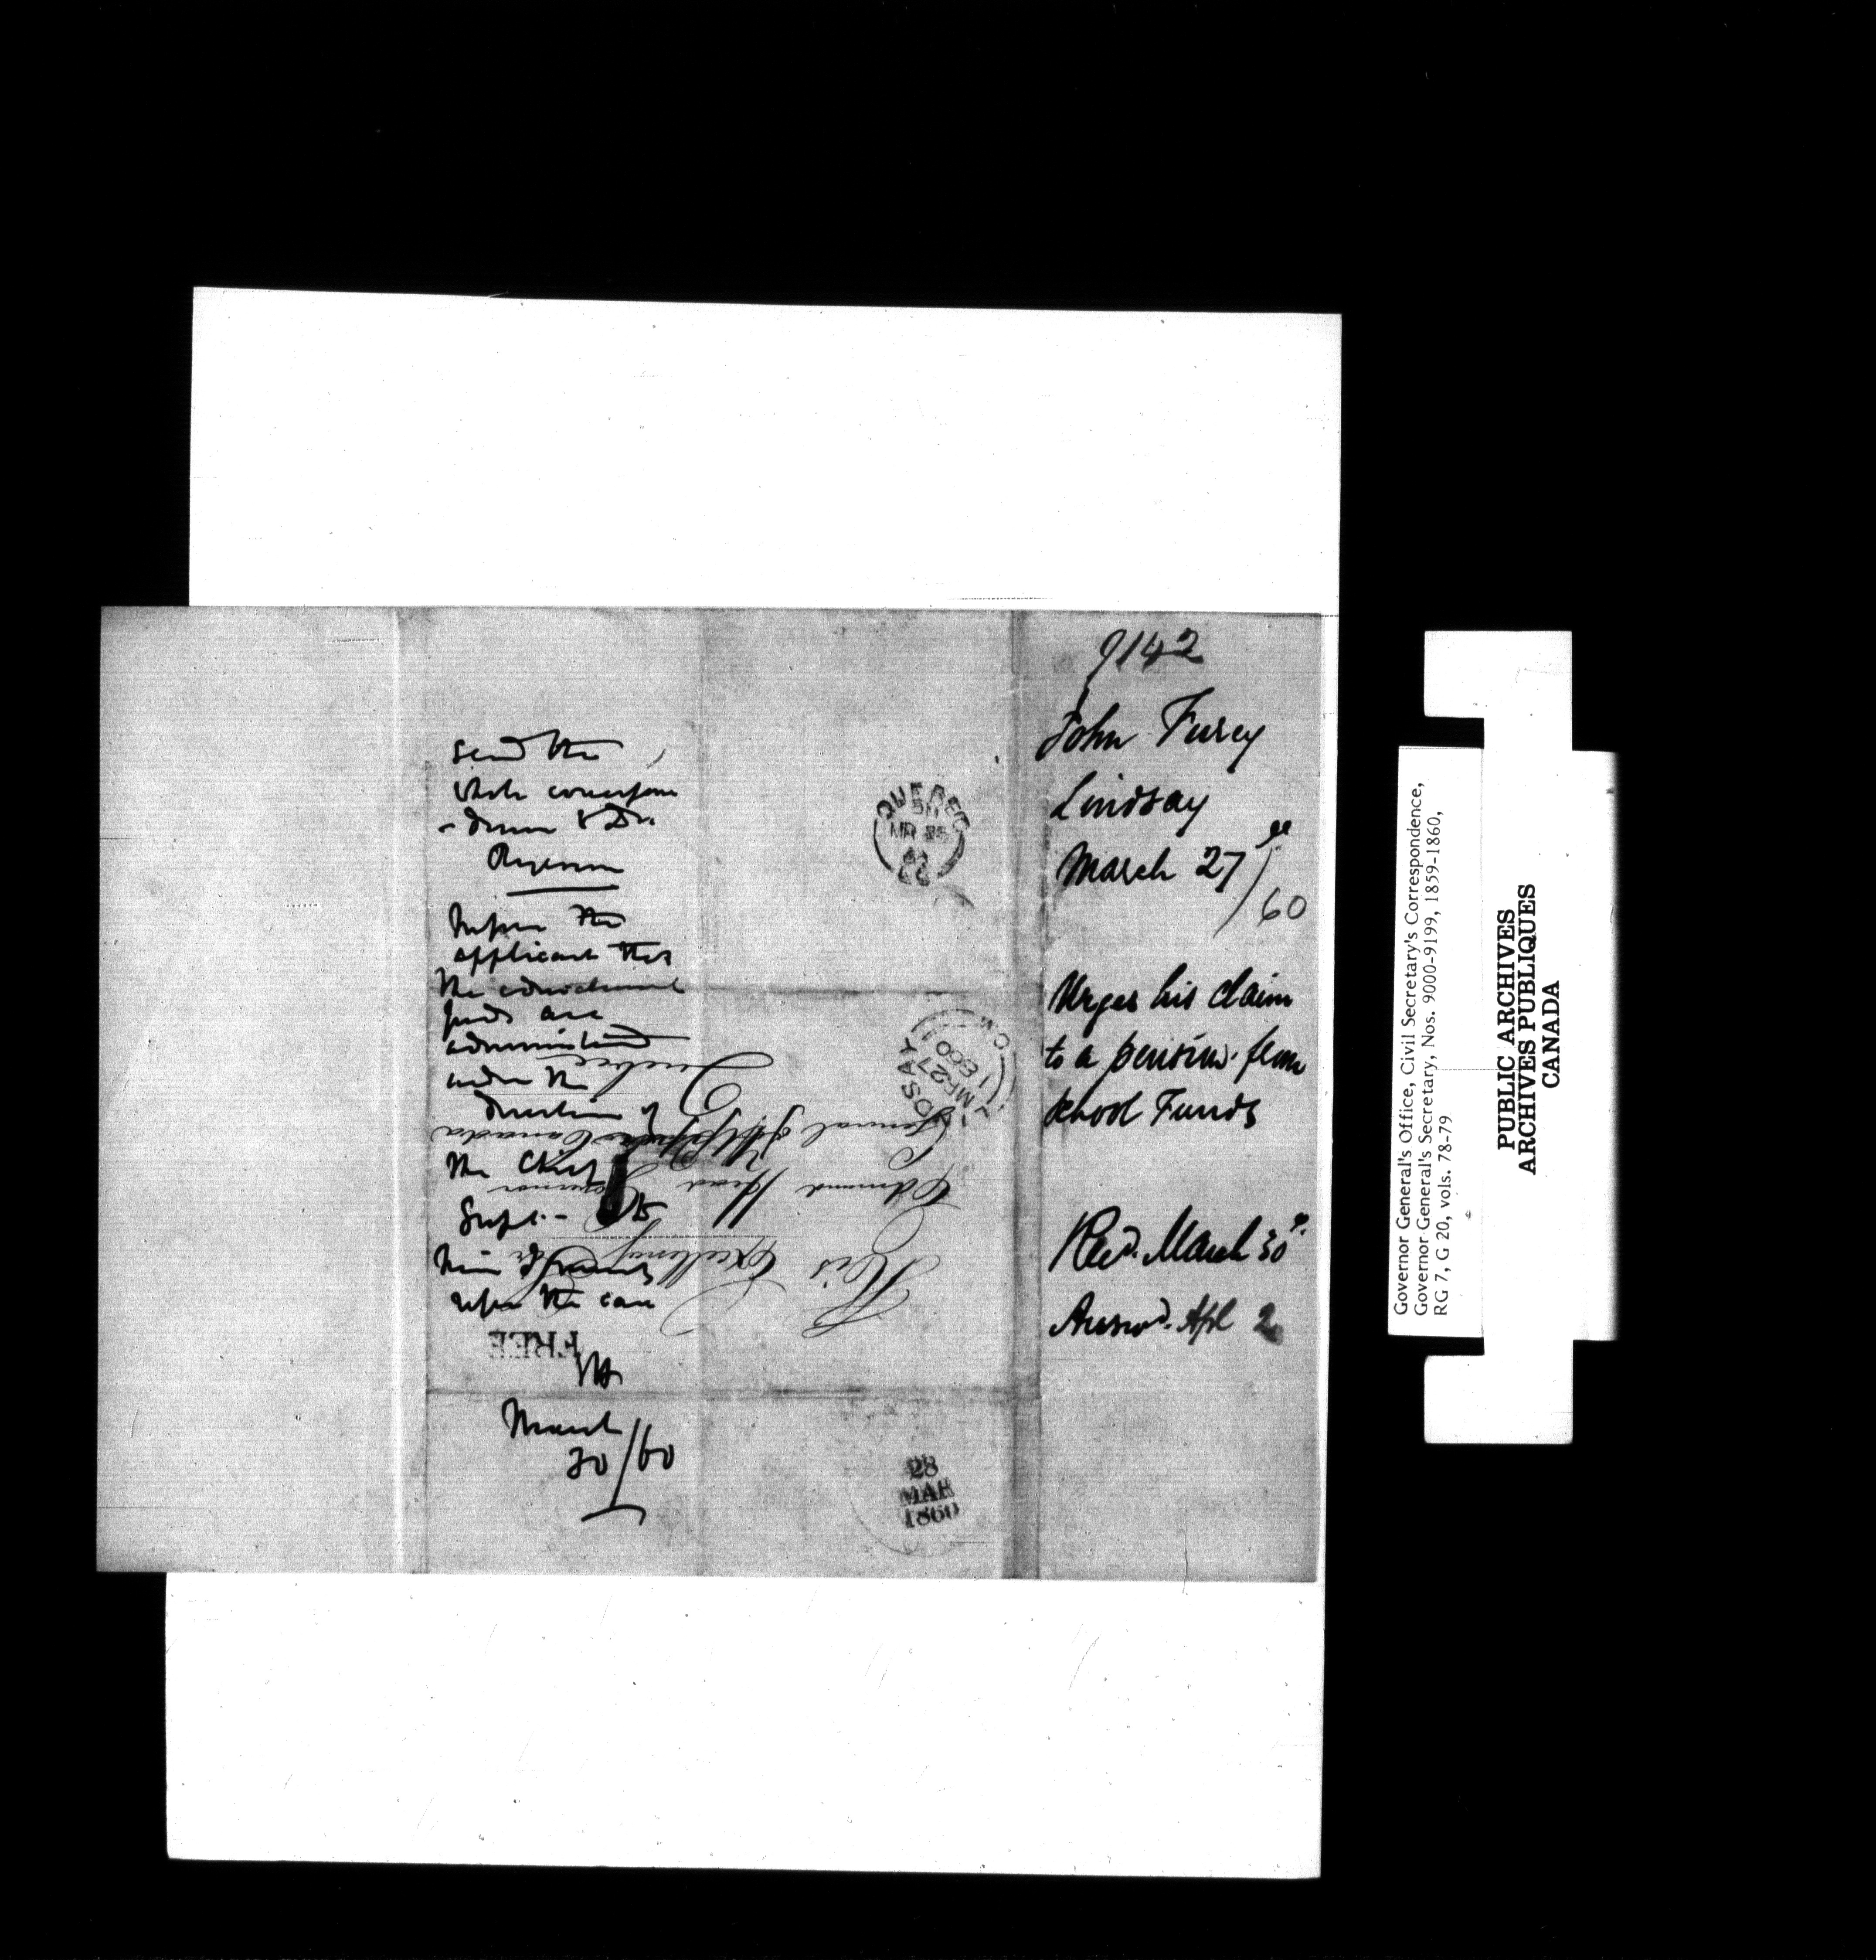 9142
John Furey
Lindsay
March 27th/60
Urges his claim
to a pension from
School Funds
Recd. March 30th.
Answd. Apl 2
Send the
whole correspon
-dence to Dr.
Ryerson
Inform the
applicant that
the educational
funds are
administered
under the
direction of
the Chief
Supt. -
him &
upon the case
March
30/60
His Excellency Sir
Edmund Head Governor
General of Canada
Quebec
FREE
QUEBEC
MR
LINDSAY
MR 27
1860
C.W
28
MAR
1860
Governor General's Office, Civil Secretary's Correspondence,
Governor General's Secretary, Nos. 9000-9199, 1859-1860,
RG 7, G 20, vols. 78-79
PUBLIC ARCHIVES
ARCHIVES PUBLIQUES
CANADA